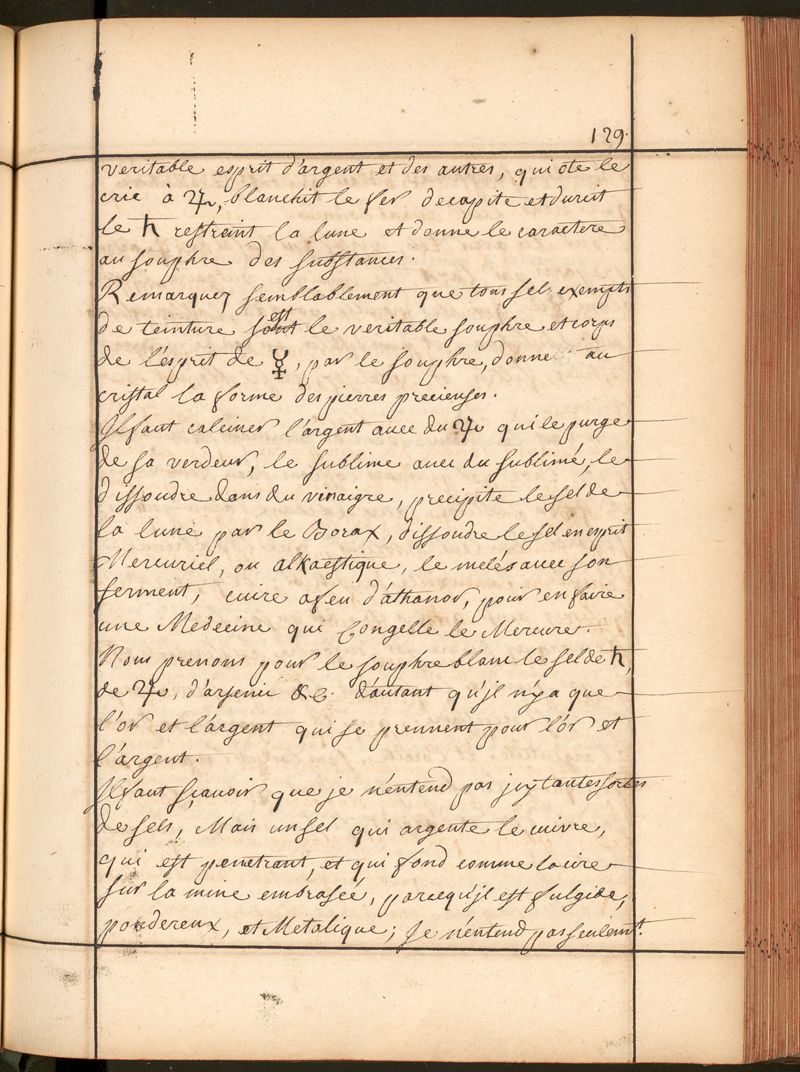 129.
veritable esprit d'argent et des autres, qui ote le
cric à ♃, blanchit le fer decapite et durcit
le ♄ restraint la lune et donne le caractere
au souphre des substances.
Remarquez semblablement que tous sel exempts
de teinture est le veritable souphre et corps
de l'esprit de ☿, par le souphre, donne au
cristal la forme des pierres precieuses.
Il faut calciner l'argent avec du ♃ qui le purge
de sa verdeur, le sublime avec du sublimé, le
dissoudre dans du vinaigre, precipite le sel de
la lune par le Borax, dissoudre le sel en esprit
Mercuriel, ou alkaestique, le melés avec son
ferment, cuire a feu d'athanor, pour en faire
une Medecine qui Congelle le Mercure.
Nous prenons pour le souphre blanc le sel de ♄,
de ♃, d'arsenic &c. d'autant qu'jl n'ya que
l'or et l'argent qui se prennent pour l'or et
l'argent.
Il faut sçavoir que je n'entend pas jcy toutes sortes
de sels, Mais un sel qui argente le cuivre,
qui est penetrant, et qui fond comme la cire
sur la mine embraseé, parcequ'jl est fulgide,
pondereux, et Metalique; Je n'entend pas seulemt.